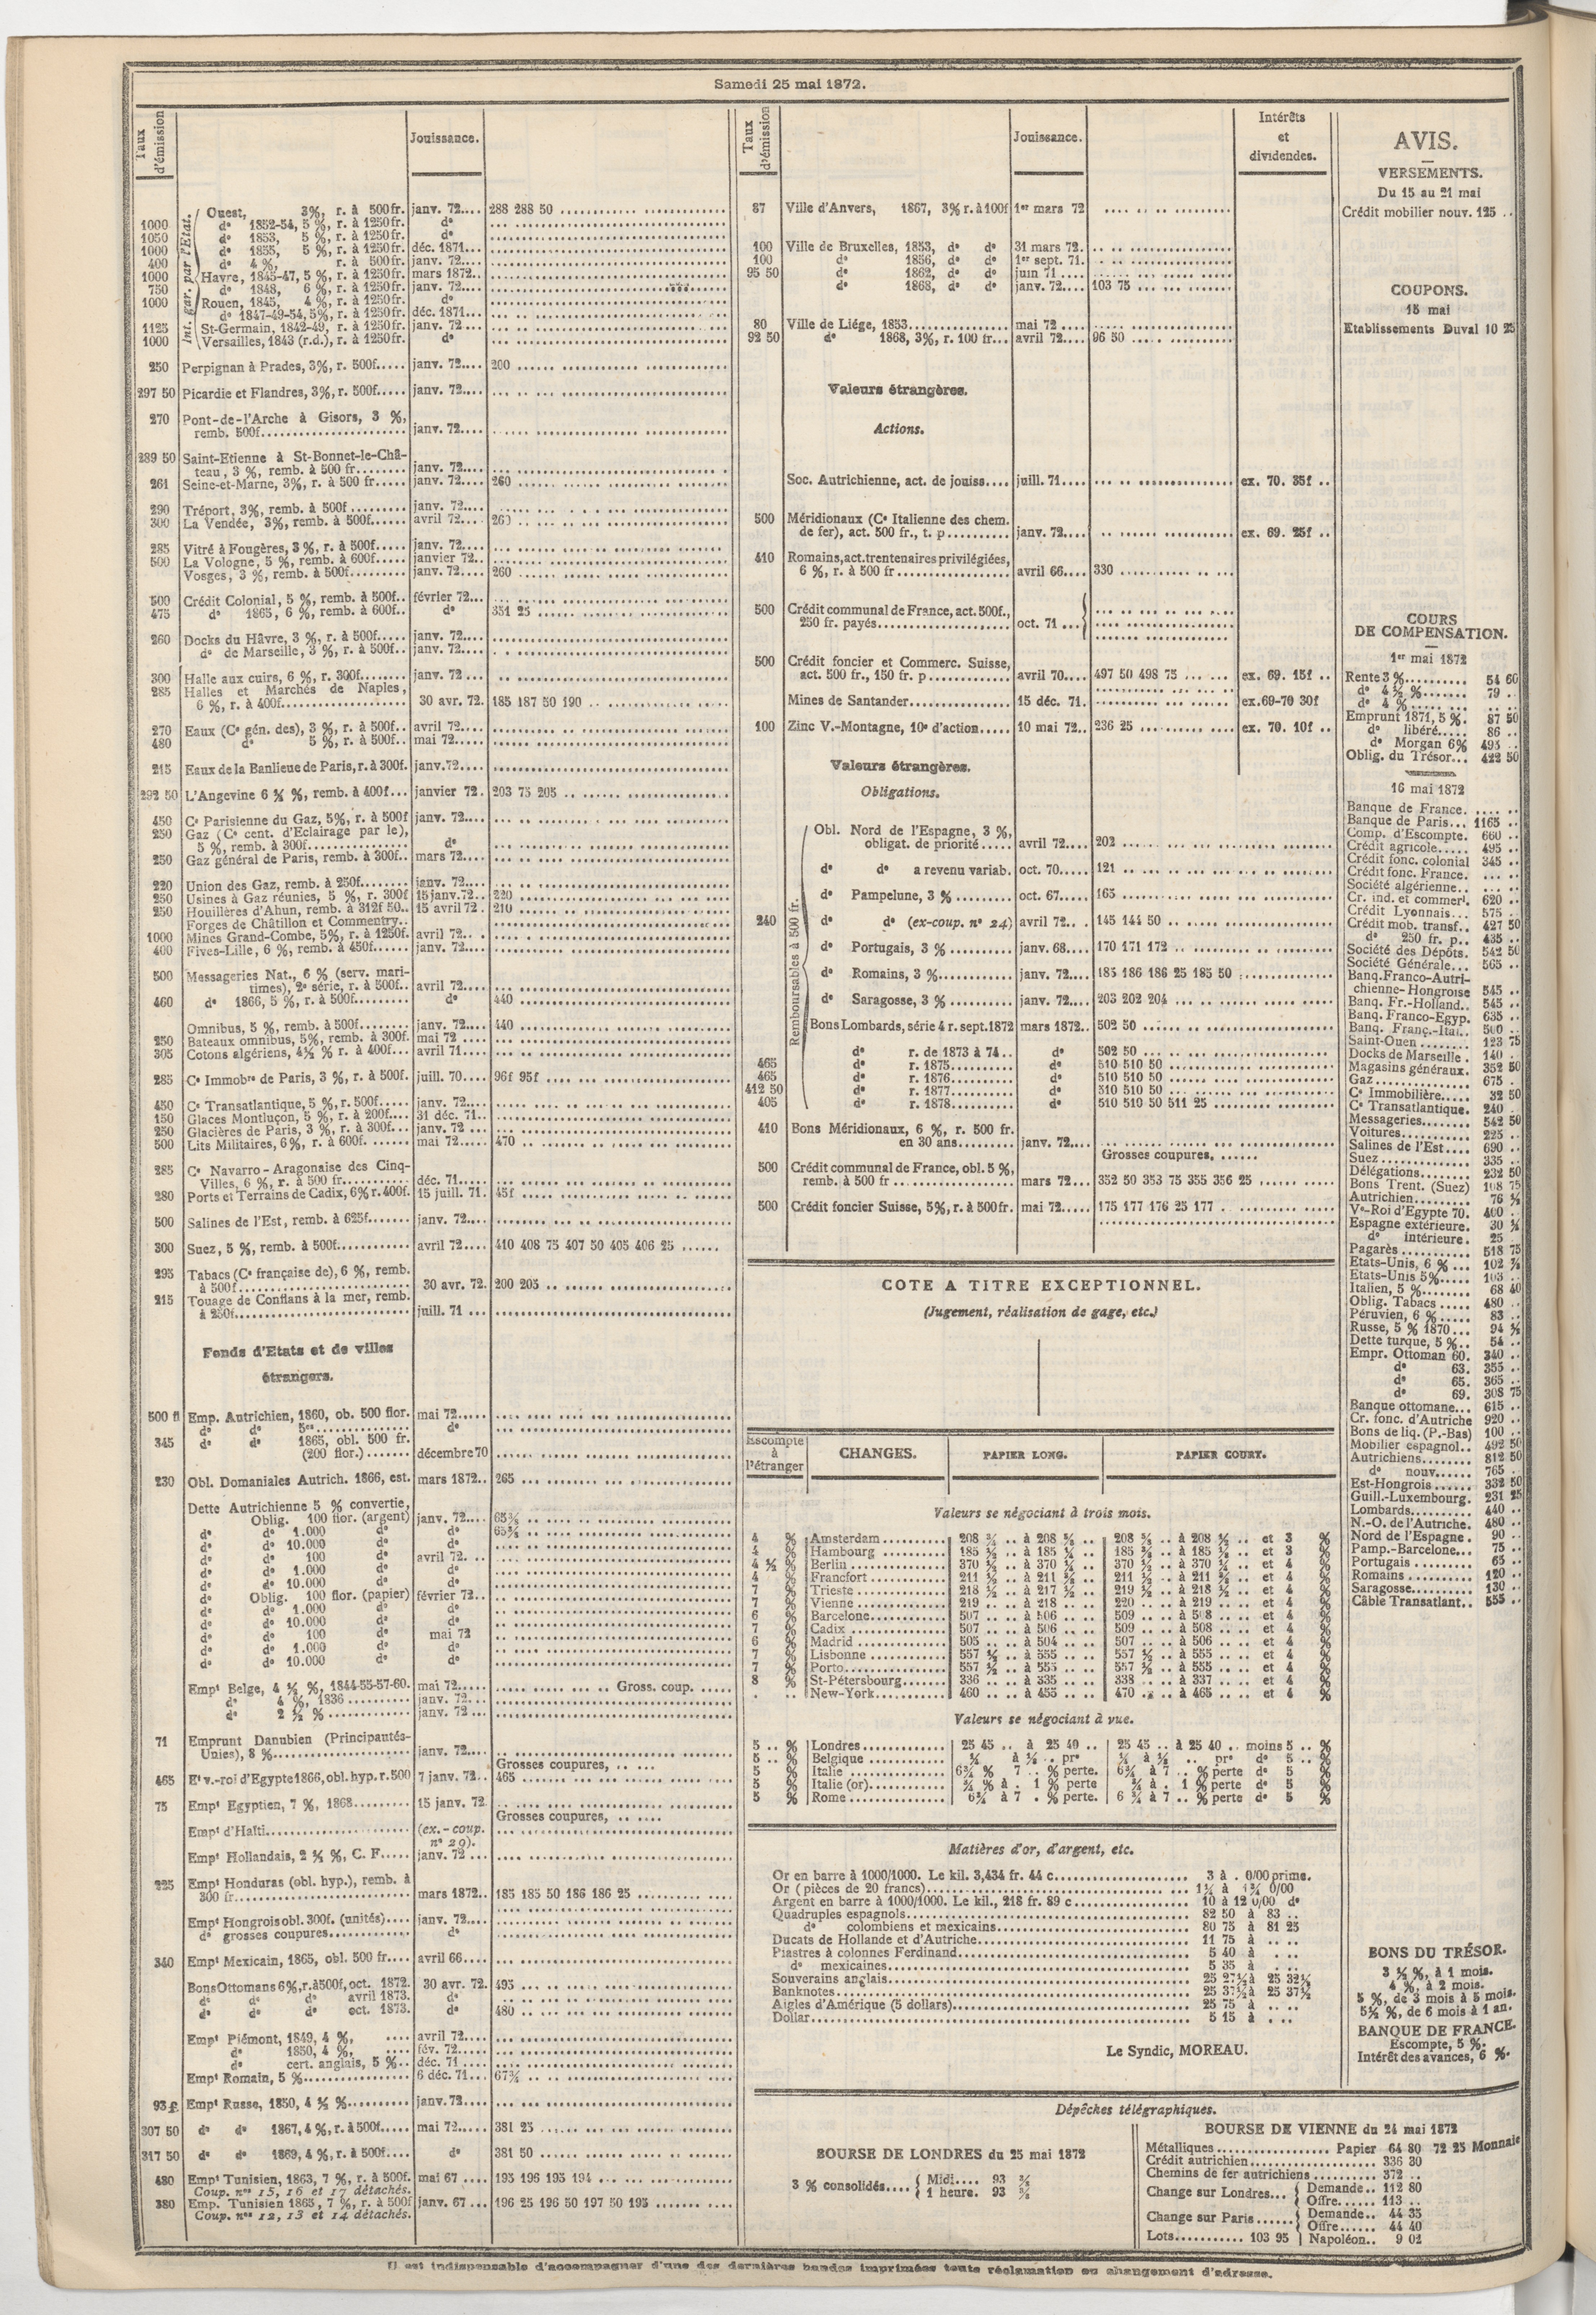 Samedi 25 mai 1872.
Taux d'émission
Jouissance.
Int. gar. par l'Etat.
Ouest, 3%, r. à 500fr. janv. 72.... 288 288 50
1000 do 1852-54, 5 %, r. à 1250fr. do
1050 do 1853, 5 %, r. à 1250fr. do
1000 do 1855, 5 %, r. à 1250fr. déc. 1871...
400 do 4 %, r. à 500fr. janv. 72....
1000 Havre, 1845-47, 5 %, r. à 1250fr. mars 1872..
750 do 1848, 6 %, r. à 1250fr. janv. 72....
1000 Rouen, 1845, 4 %, r. à 1250fr. do
do 1847-49-54, 5%, r. à 1250fr. déc. 1871...
1125 St-Germain, 1842-49, r. à 1250fr. janv. 72....
1000 Versailles, 1843 (r.d.), r. à 1250fr. do
250 Perpignan à Prades, 3%, r. 500f..... janv. 72.... 200
297 50 Picardie et Flandres, 3%, r. 500f..... janv. 72....
270 Pont-de-l'Arche à Gisors, 3 %,
remb. 500f.... janv. 72....
289 50 Saint-Etienne à St-Bonnet-le-Châ-
teau, 3 %, remb. à 500 fr........ janv. 72....
261 Seine-et-Marne, 3%, r. à 500 fr..... janv. 72.... 260
290 Tréport, 3%, remb. à 500f ......... janv. 72....
300 La Vendée, 3%, remb. à 500f...... avril 72.... 260
285 Vitré à Fougères, 3 %, r. à 500f..... janv. 72....
500 La Vologne, 5 %, remb. à 600f..... janvier 72..
Vosges, 3 %, remb. à 500f......... janv. 72.... 260
500 Crédit Colonial, 5 %, remb. à 500f.. février 72...
475 do 1865, 6 %, remb. à 600f.. do 351 25
260 Docks du Hâvre, 3 %, r. à 500f..... janv. 72....
do de Marseille, 3 %, r. à 500f.. janv. 72....
300 Halle aux cuirs, 6 %, r. 300f........ janv. 72 ...
285 Halles et Marchés de Naples,
6 %, r. à 400f.... 30 avr. 72. 185 187 50 190
270 Eaux (Ce gén. des), 3 %, r. à 500f.. avril 72....
480 do 5 %, r. à 500f.. mai 72.....
215 Eaux de la Banlieue de Paris, r. à 300f. janv.72....
292 50 L'Angevine 6 ½ %, remb. à 400f... janvier 72. 203 75 205
450 Ce Parisienne du Gaz, 5%, r. à 500f janv. 72....
250 Gaz (Ce cent. d'Eclairage par le),
5 %, remb. à 300f.... do
250 Gaz général de Paris, remb. à 300f.. mars 72....
220 Union des Gaz, remb. à 250f........ janv. 72....
250 Usines à Gaz réunies, 5 %, r. 300f 15 janv.72.. 220
250 Houillères d'Ahun, remb. à 312f 50.. 15 avril 72. 210
Forges de Châtillon et Commentry..
1000 Mines Grand-Combe, 5%, r. à 1250f. avril 72...
400 Fives-Lille, 6 %, remb. à 450f...... janv. 72....
500 Messageries Nat., 6 % (serv. mari-
times), 2e série, r. à 500f.. avril 72....
460 do 1866, 5 %, r. à 500f......... do 440
Omnibus, 5 %, remb. à 500f........ janv. 72.... 440
250 Bateaux omnibus, 5%, remb. à 300f. mai 72 ....
305 Cotons algériens, 4½ % r. à 400f... avril 71....
285 Ce Immobre de Paris, 3 %, r. à 500f. juill. 70.... 96f 95f
450 Ce Transatlantique, 5 %, r. 500f..... janv. 72....
150 Glaces Montluçon, 5 %, r. à 200f.... 31 déc. 71..
250 Glacières de Paris, 3 %, r. à 300f... janv. 72 ...
500 Lits Militaires, 6%, r. à 600f. ....... mai 72..... 470
285 Ce Navarro-Aragonaise des Cinq-
Villes, 6 %, r. à 500 fr.......... déc. 71.....
280 Ports et Terrains de Cadix, 6% r. 400f. 15 juill. 71. 45f
500 Salines de l'Est, remb. à 625f....... janv. 72....
300 Suez, 5 %, remb. à 500f............ avril 72.... 410 408 75 407 50 405 406 25
295 Tabacs (Ce française de), 6 %, remb.
à 500f.... 30 avr. 72. 200 205
215 Touage de Conflans à la mer, remb.
à 250f.... juill. 71 ...
Fonds d'Etats et de villes
étrangers.
500 fl Emp. Autrichien, 1860, ob. 500 flor. mai 72.....
do do 5es.... do
345 do do 1865, obl. 500 fr.
(200 flor.)....... décembre 70
230 Obl. Domaniales Autrich. 1866, est. mars 1872.. 265
Dette Autrichienne 5 % convertie,
Oblig. 100 flor. (argent) janv. 72....
do do 1.000 do do
do do 10.000 do do
do do 100 do avril 72. ..
do do 1.000 do do
do do 10.000 do do
do Oblig. 100 flor. (papier) février 72..
do do 1.000 do do
do do 10.000 do do
do do 100 do mai 72
do do 1.000 do do
do do 10.000 do do
Empt Belge, 4 ½ %, 1844-55-57-60. mai 72..... Gross. coup.
do 4 %, 1836 .......... janv. 72...
do 2 ½ % ............ janv. 72 ...
71 Emprunt Danubien (Principautés-
Unies), 8 %.... janv. 72....
Grosses coupures,
465 Et v.-roi d'Egypte 1866, obl. hyp. r. 500 7 janv. 72.. 465
75 Empt Egyptien, 7 %, 1868......... 15 janv. 72.
Grosses coupures,
Empt d'Haïti.... (ex.-coup.
no 20).
Empt Hollandais, 2 ½ %, C. F..... janv. 72 ...
225 Empt Honduras (obl. hyp.), remb. à
300 fr.... mars 1872.. 185 185 50 186 186 25
Empt Hongrois obl. 300f. (unités).... janv. 72....
do grosses coupures............. do
340 Empt Mexicain, 1865, obl. 500 fr.... avril 66....
Bons Ottomans 6%, r. à 500f, oct. 1872. 30 avr. 72. 495
do do do avril 1873. do
do do do oct. 1873. do 480
Empt Piémont, 1849, 4 %, .... avril 72....
do 1850, 4 %, .... fév. 72....
do cert. anglais, 5 %.. déc. 71 ....
Empt Romain, 5 %.... 6 déc. 71...
93 £ Empt Russe, 1850, 4 ½ %.......... janv.72....
307 50 do do 1867, 4 %, r. à 500f..... mai 72..... 381 25
317 50 do do 1869, 4 %, r. à 500f.... do 381 50
480 Empt Tunisien, 1863, 7 %, r. à 500f. mai 67 .... 195 196 195 194
Coup. nos 15, 16 et 17 détachés.
380 Emp. Tunisien 1865, 7 %, r. à 500f janv. 67 ... 196 25 196 50 197 50 195
Coup. nos 12, 13 et 14 détachés.
Taux d'émission
Jouissance.
Intérêts
et
dividendes.
87 Ville d'Anvers, 1867, 3% r. à 100f 1er mars 72
100 Ville de Bruxelles, 1853, do do 31 mars 72.
100 do 1856, do do 1er sept. 71.
95 50 do 1862, do do juin 71....
do 1868, do do janv. 72.... 103 75
80 Ville de Liége, 1853............... mai 72 ....
92 50 do 1868, 3%, r. 100 fr... avril 72.... 96 50
Valeurs étrangères.
Actions.
Soc. Autrichienne, act. de jouiss.... juill. 71.... ex. 70. 35f ..
500 Méridionaux (Ce Italienne des chem.
de fer), act. 500 fr., t. p.......... janv. 72.... ex. 69. 25f ..
410 Romains, act. trentenaires privilégiées,
6 %, r. à 500 fr................ avril 66.... 330
500 Crédit communal de France, act. 500f.,
250 fr. payés.... oct. 71 ...
500 Crédit foncier et Commerc. Suisse,
act. 500 fr., 150 fr. p............ avril 70.... 497 50 498 75 ex. 69. 15f ..
Mines de Santander.............. 15 déc. 71. ex.69-70 30f
100 Zinc V.-Montagne, 10e d'action..... 10 mai 72.. 236 25 ex. 70. 10f ..
Valeurs étrangères.
Obligations.
Remboursables à 500 fr.
Obl. Nord de l'Espagne, 3 %,
obligat. de priorité..... avril 72.... 202
do do a revenu variab. oct. 70..... 121
do Pampelune, 3 % ......... oct. 67..... 165
240 do do (ex-coup. no 24) avril 72.. . 145 144 50
do Portugais, 3 % .......... janv. 68.... 170 171 172
do Romains, 3 %............ janv. 72.... 185 186 186 25 185 50
do Saragosse, 3 % .......... janv. 72.... 203 202 204
Bons Lombards, série 4 r. sept. 1872 mars 1872.. 502 50
do r. de 1873 à 74.. do 502 50
465 do r. 1875.......... do 510 510 50
465 do r. 1876.......... do 510 510 50
412 50 do r. 1877.......... do 510 510 50
405 do r. 1878.......... do 510 510 50 511 25
410 Bons Méridionaux, 6 %, r. 500 fr.
en 30 ans......... janv. 72....
Grosses coupures,
500 Crédit communal de France, obl. 5 %,
remb. à 500 fr.... mars 72... 352 50 353 75 355 356 25
500 Crédit foncier Suisse, 5%, r. à 500 fr. mai 72..... 175 177 176 25 177
COTE A TITRE EXCEPTIONNEL.
(Jugement, réalisation de gage, etc.)
Escompte
à
l'étranger
CHANGES. PAPIER LONG. PAPIER COURT.
Valeurs se négociant à trois mois.
4 % Amsterdam.......... 208 .. à 208 208 .. à 208 et 3 %
4 % Hambourg .......... 185 .. à 185 185 .. à 185 et 3 %
4 ½ % Berlin .............. 370 .. à 370 370 .. à 370 et 4 %
4 % Francfort ........... 211 .. à 211 211 .. à 211 et 4 %
7 % Trieste ............. 218 ½ .. à 217 ½ 219 ½ .. à 218 ½ et 4 %
7 % Vienne ............. 219 .. .. à 218 .. 220 .. .. à 219 .. et 4 %
6 % Barcelone........... 507 .. .. à 506 .. 509 .. .. à 508 .. et 4 %
7 % Cadix .............. 507 .. .. à 506 .. 509 .. .. à 508 .. et 4 %
6 % Madrid ............. 505 .. .. à 504 .. 507 .. .. à 506 .. et 4 %
7 % Lisbonne ........... 557 ½ .. à 555 .. 557 ½ .. à 555 .. et 4 %
7 % Porto............... 557 ½ .. à 555 .. 557 ½ .. à 555 .. et 4 %
8 % St-Pétersbourg...... 336 .. .. à 335 .. 338 .. .. à 337 .. et 4 %
New-York........... 460 .. .. à 455 .. 470 .. .. à 465 .. et 4 %
Valeurs se négociant à vue.
5 .. % Londres ............ 25 45 .. à 25 40 .. 25 45 .. à 25 40 .. moins 5 .. %
5 .. % Belgique ........... ¼ à ½ .. pre ¼ à ½ .. pre do 5 .. %
5 % Italie .............. 6¾ % 7 .. % perte. 6¾ à 7 .. % perte do 5 %
5 % Italie (or)........... ¾ % à . 1 % perte ¾ à . 1 % perte do 5 %
5 % Rome .............. 6¾ à 7 . % perte. 6 ¾ à 7 .. % perte do 5 %
Matières d'or, d'argent, etc.
Or en barre à 1000/1000. Le kil. 3,434 fr. 44 c.... 3 à . 0/00 prime.
Or (pièces de 20 francs).... 1½ à 1¾ 0/00
Argent en barre à 1000/1000. Le kil., 218 fr. 89 c.... 10 à 12 0/00 do
Quadruples espagnols.... 82 50 à 83 ..
do colombiens et mexicains.... 80 75 à 81 25
Ducats de Hollande et d'Autriche.... 11 75 à .. ..
Piastres à colonnes Ferdinand.... 5 40 à . ..
do mexicaines.... 5 35 à . ..
Souverains anglais.... 25 27½ à 25 32½
Banknotes.... 25 37½ à 25 37½
Aigles d'Amérique (5 dollars).... 25 75 à .. ..
Dollar.... 5 15 à . ..
Le Syndic, MOREAU.
AVIS.
VERSEMENTS.
Du 15 au 21 mai
Crédit mobilier nouv. 125 ..
COUPONS.
15 mai
Etablissements Duval 10 25
COURS
DE COMPENSATION.
1er mai 1872
Rente 3 %.......... 54 60
do 4 ½ %....... 79 ..
do 4 %.... .. ..
Emprunt 1871, 5 %. 87 50
do libéré..... 86 ..
do Morgan 6% 495 ..
Oblig. du Trésor... 422 50
16 mai 1872
Banque de France. .... ..
Banque de Paris... 1165 ..
Comp. d'Escompte. 660 ..
Crédit agricole..... 495 ..
Crédit fonc. colonial 345 ..
Crédit fonc. France. ... ..
Société algérienne.. ... ..
Cr. ind. et commerl. 620 ..
Crédit Lyonnais... 575 ..
Crédit mob. transf.. 427 50
do 250 fr. p.. 435 ..
Société des Dépôts. 542 50
Société Générale... 565 ..
Banq. Franco-Autri-
chienne-Hongroise 545 ..
Banq. Fr.-Holland.. 545 ..
Banq. Franco-Egyp. 635 ..
Banq. Franç.-Ital.. 500 ..
Saint-Ouen ........ 123 75
Docks de Marseille . 140 .
Magasins généraux. 352 50
Gaz.... 675 .
Ce Immobilière..... 32 50
Ce Transatlantique. 240 .
Messageries........ 542 50
Voitures........... 225 ..
Salines de l'Est.... 690 ..
Suez .............. 335 ..
Délégations........ 232 50
Bons Trent. (Suez) 108 75
Autrichien......... 76 ½
Ve-Roi d'Egypte 70. 400 ..
Espagne extérieure. 30
do intérieure. 25 .
Pagarès ........... 518 75
Etats-Unis, 6 % ... 102
Etats-Unis 5%..... 103 ..
Italien, 5 %........ 68 40
Oblig. Tabacs ..... 480 ..
Péruvien, 6 % ..... 83 ..
Russe, 5 % 1870... 94 ½
Dette turque, 5 %.. 54 ..
Empr. Ottoman 60. 340 ..
do 63. 355 ..
do 65. 365 ..
do 69. 308 75
Banque ottomane... 615 ..
Cr. fonc. d'Autriche 920 ..
Bons de liq. (P.-Bas) 100 ..
Mobilier espagnol.. 492 50
Autrichiens........ 812 50
do nouv...... 765 .
Est-Hongrois ...... 332 50
Guill.-Luxembourg. 231 25
Lombards.......... 440 ..
N.-O. de l'Autriche. 480 ..
Nord de l'Espagne . 90 ..
Pamp.-Barcelone... 75 ..
Portugais .......... 65 ..
Romains .......... 120 ..
Saragosse.......... 130 ..
Câble Transatlant.. 555 ..
BONS DU TRÉSOR.
3 ½ %, à 1 mois.
4 %, à 2 mois.
5 %, de 3 mois à 5 mois.
5½ %, de 6 mois à 1 an.
BANQUE DE FRANCE.
Escompte, 5 %.
Intérêt des avances, 6 %.
Dépêches télégraphiques.
BOURSE DE LONDRES du 25 mai 1872
3 % consolidés.... Midi.... 93
1 heure. 93
BOURSE DE VIENNE du 24 mai 1872
Métalliques.................. Papier 64 80 72 25 Monnaie
Crédit autrichien.................... 336 30
Chemins de fer autrichiens .......... 372 ..
Change sur Londres... Demande.. 112 80
Offre...... 113 ..
Change sur Paris...... Demande.. 44 35
Offre...... 44 40
Lots........... 103 95 Napoléon.. 9 02
Il est indispensable d'accompagner d'une des dernières bandes imprimées toute réclamation ou changement d'adresse.